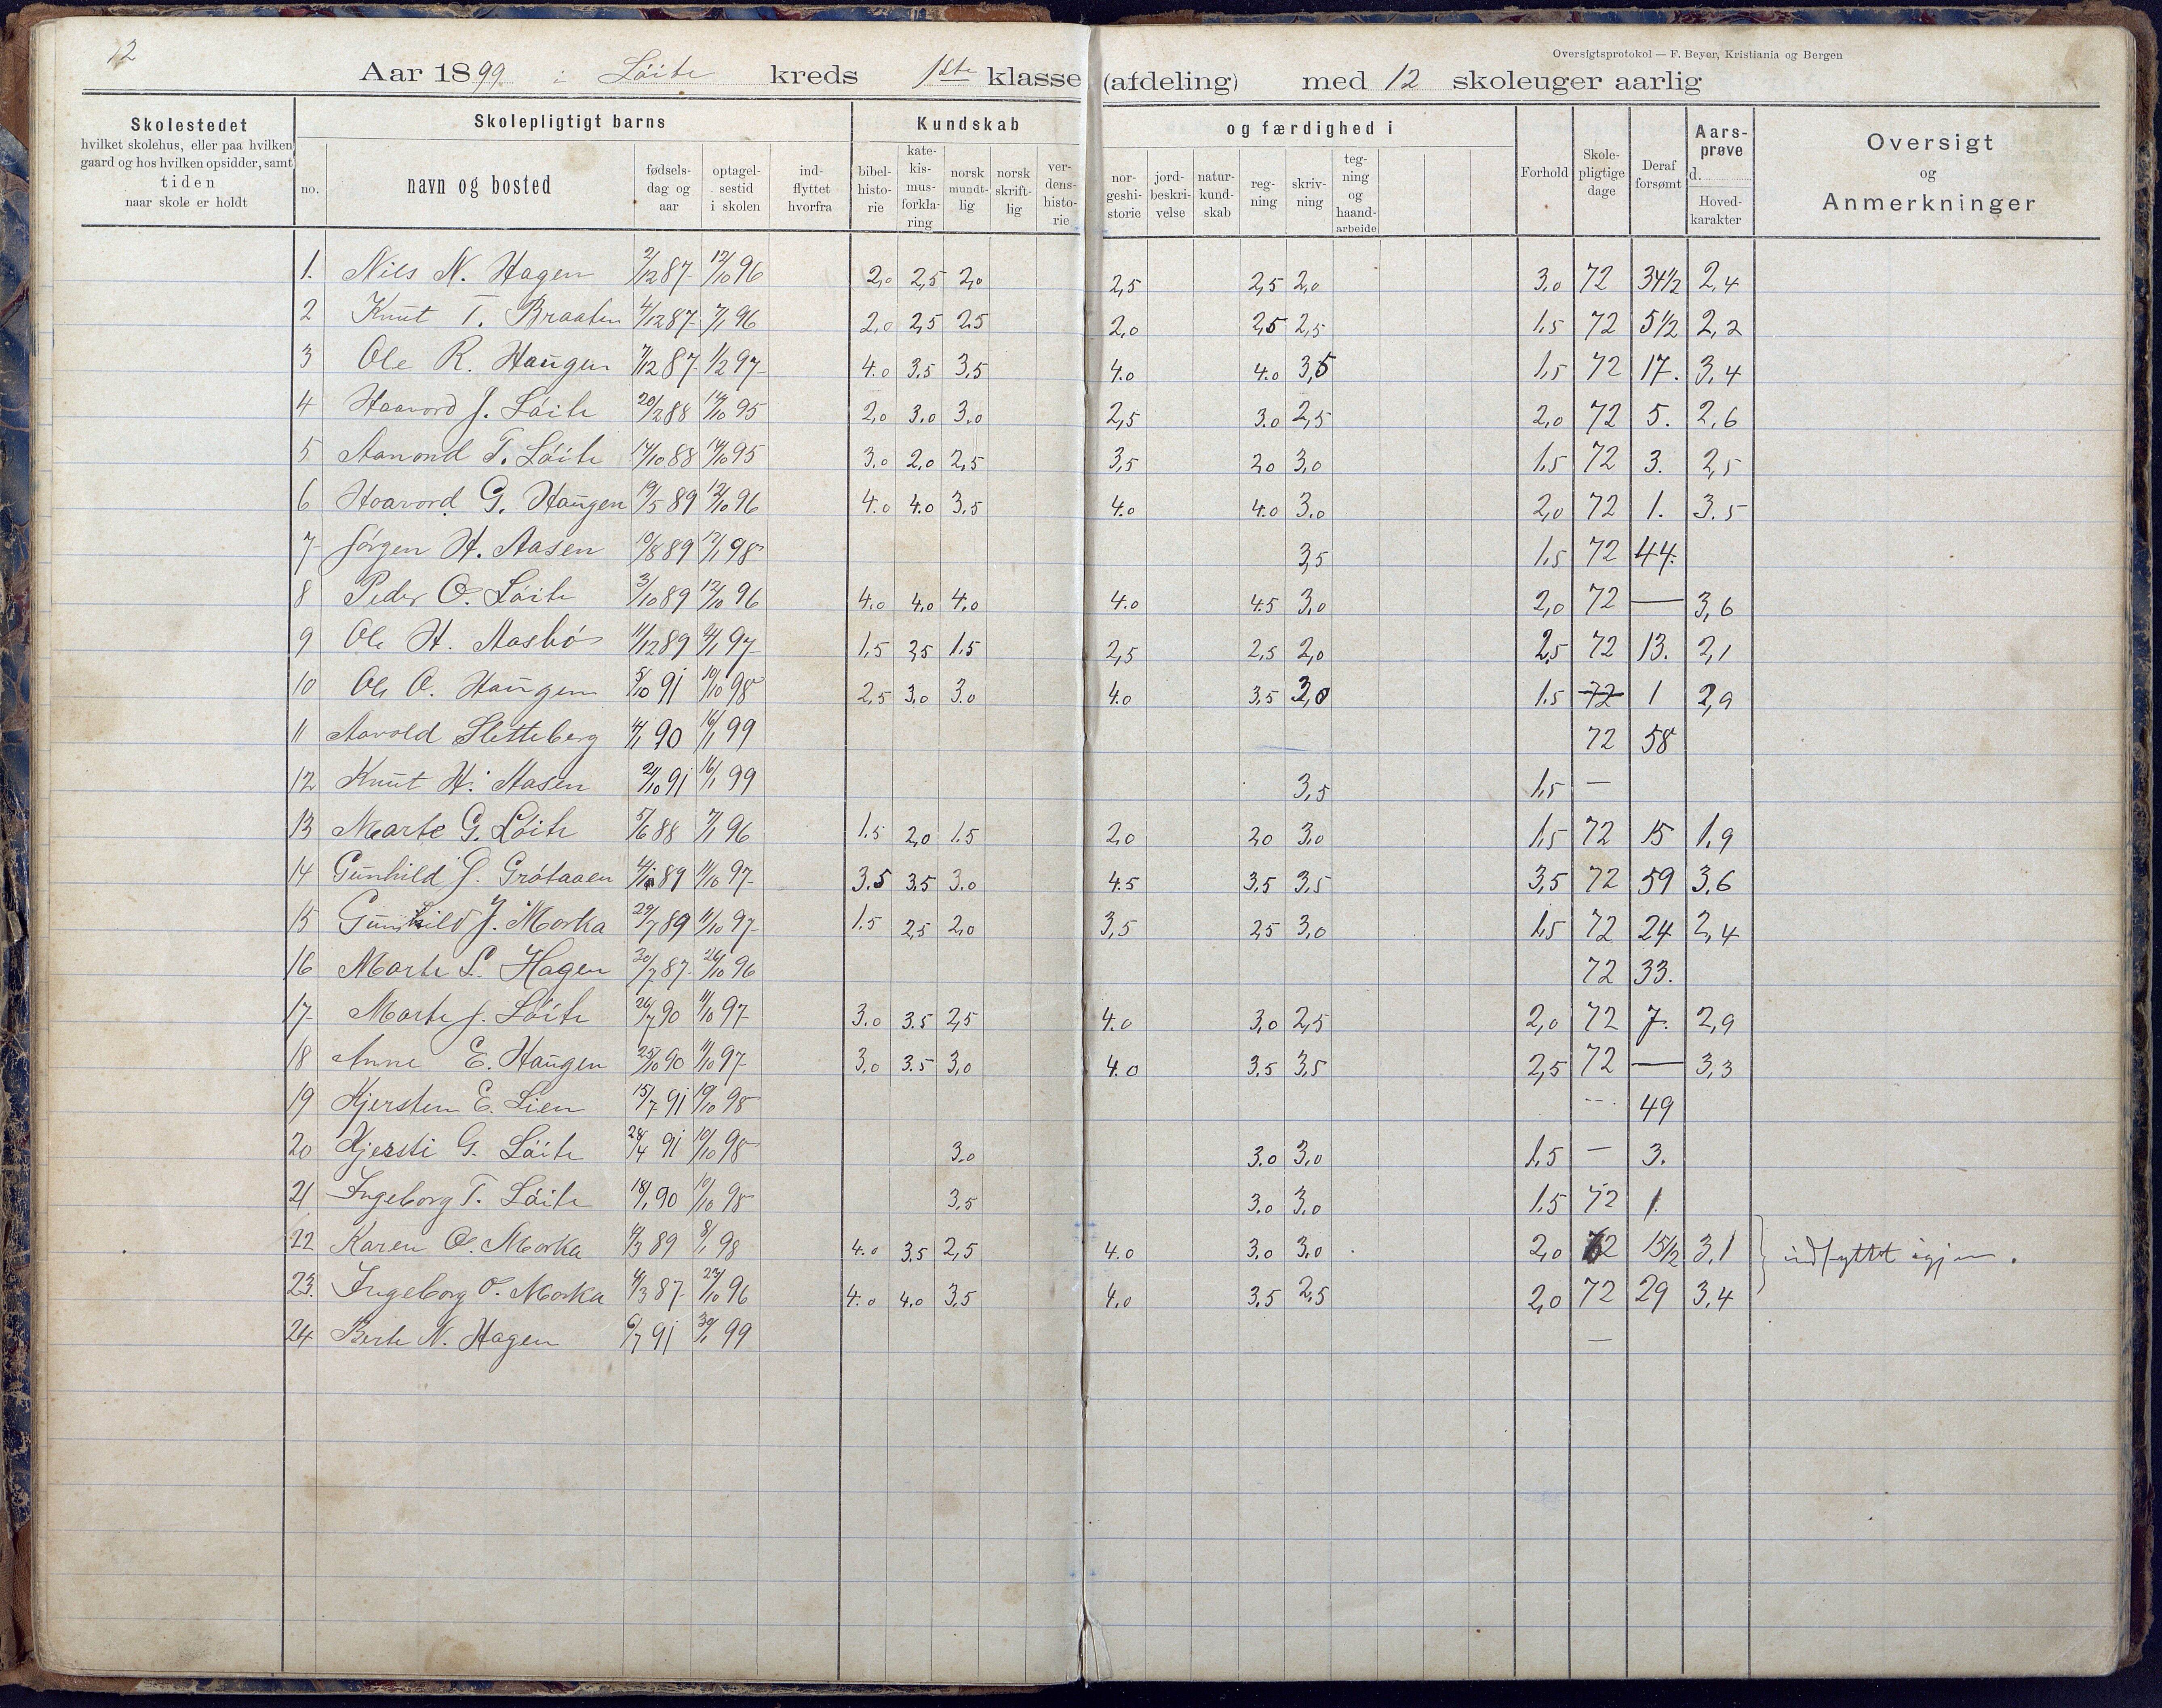 12
Oversigtsprotokol — F. Beyer, Kristiania og Bergen
Aar 1899 i Löite kreds 1ste klasse (afdeling) med 12 skoleuger aarlig
Skolestedet hvilket skolehus, eller paa hvilken gaard og hos hvilken opsidder, samt tiden naar skole er holdt
Skolepligtigt barns
Kundskab og færdighed i
no. navn og bosted fødsels-dag og aar optagel-sestid i skolen ind-flyttet hvorfra bibel-histo-rie kate-kis-mus-forkla-ring norsk mundt-lig norsk skrift-lig ver-dens-histo-rie nor-geshi-storie jord-beskri-velse natur-kund-skab reg-ning skriv-ning teg-ning og haand-arbeide Forhold Skole-pligtige dage Deraf forsømt Aars-prøve d. Hoved-karakter Oversigt og Anmerkninger
1. Nils N. Hagen 2/12 87 12/10 96 2,0 2,5 2,0 2,5 2,5 2,0 3.0 72 34 1/2 2,4
2 Knut T. Braaten 4/12 87 7/1 96 2,0 2,5 2.5 2,0 2,5 2,5 1,5 72 5 1/2 2,2
3 Ole R. Haugen 7/12 87 1/2 97 4.0 3.5 3,5 4.0 4.0 3,5 1,5 72 17. 3,4
4 Haavord J. Löite 20/2 88 14/10 95 2,0 3.0 3.0 2,5 3.0 2,5 2,0 72 5. 2,6
5 Aanond T. Löite 17/10 88 14/10 95 3.0 2.0 2,5 3,5 20 3,0 1,5 72 3. 2,5
6 Haavord G. Haugen 19/5 89 12/10 96 4.0 4.0 3,5 4.0 4.0 3.0 2,0 72 1. 3.5
7 Jörgen H. Aasen 10/8 89 17/1 98 3,5 1,5 72 44.
8 Peder O. Löite 3/10 89 12/10 96 4.0 4.0 4,0 4.0 4.5 3,0 2,0 72 — 3,6
9 Ole H. Aasbö 11/12 89 21/1 97 1,5 2,5 1.5 2,5 2,5 2,0 2,5 72 13. 2,1
10 Ole O. Haugen 5/10 91 10/10 98 2,5 3,0 3.0 4.0 3,5 3,0 1.5 72 1 2,9
11 Aavold Sletteberg 4/1 90 16/1 99 72 58
12 Knut H. Aasen 21/10 91 16/1 99 3,5 1,5 —
13 Marte G. Löite 5/6 88 7/1 96 1.5 2,0 1.5 2,0 20 3,0 1,5 72 15 1,9
14 Gunhild J. Grötaaen 89 11/10 97 3.5 3.5 3.0 4.5 3,5 3,5 3,5 72 59 3,6
15 Gunhild J. Morka 29/7 89 11/10 97 1.5 2,5 2,0 3,5 25 3,0 1,5 72 24 2,4
16 Marte L. Hagen 30/7 87 26/10 96 72 33.
17 Marte J. Löite 26/7 90 11/10 97 3.0 3.5 2,5 4.0 3,0 2,5 2,0 72 7. 2,9
18 Anne E. Haugen 25/10 90 11/10 97 3,0 3.5 3,0 4.0 3.5 3,5 2,5 72 — 3,3
19 Kjersten E. Lien 15/7 91 10/10 98 --- 49
20 Kjersti G. Löite 28/4 91 10/10 98 3.0 3.0 3,0 1,5 — 3.
21 Ingeborg T. Löite 18/1 90 10/10 98 3,5 3.0 3.0 1.5 72 1.
22 Karen O. Morka 4/3 89 8/1 98 4.0 3,5 2,5 4.0 3,0 3,0 2,0 72 15 1/2 3,1 } indflyttet igjen.
23. Ingeborg O. Morka 4/3 87 27/10 96 4.0 4,0 3,5 4,0 3,5 2,5 2,0 72 29 3,4
24 Berte N. Hagen 6/7 91 30/1 99 —